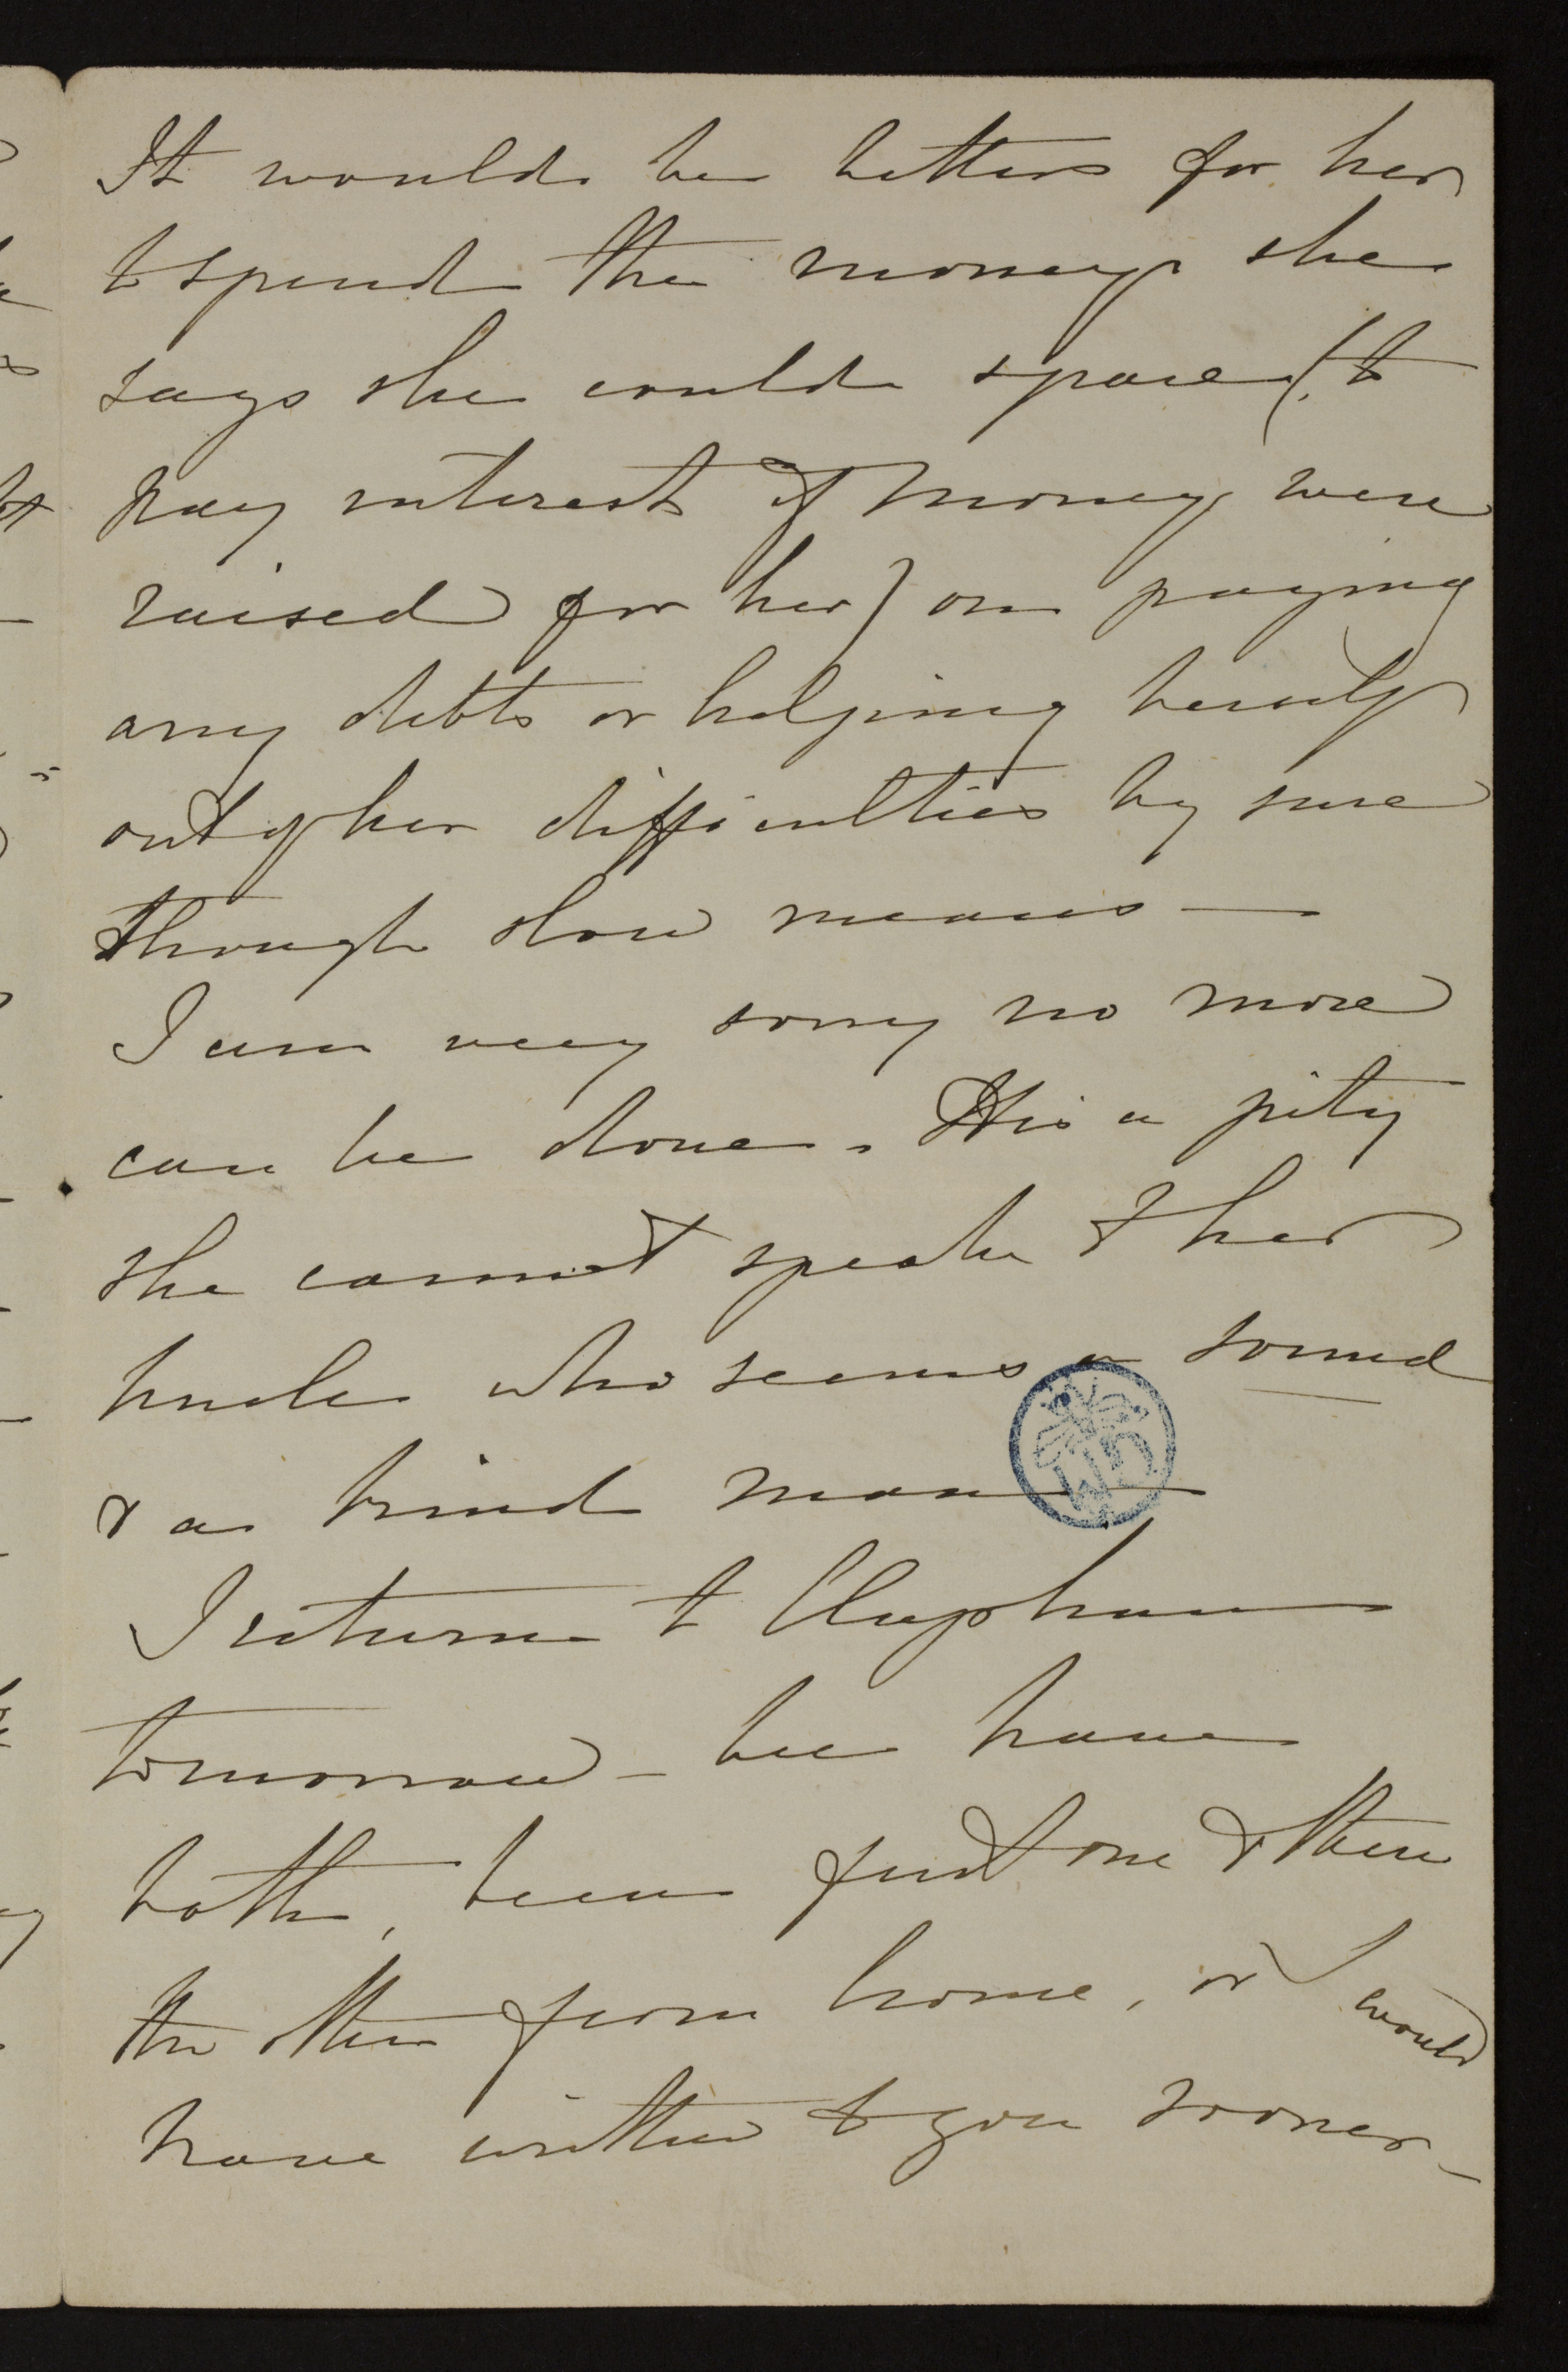 It would be better for her
to spend the money she
says she could spare (to
pay interest if money were
raised for her) on paying
any debts or helping herself
out of her difficulties by sure
though slow means —
I am very sorry no more
can be done. It is a pity
she cannot speak to her
Uncle who seems a sound
& a kind man —
I return to Clapham
tomorrow — We have
both, been first one & then
the other from home, or I would
have written to you sooner —